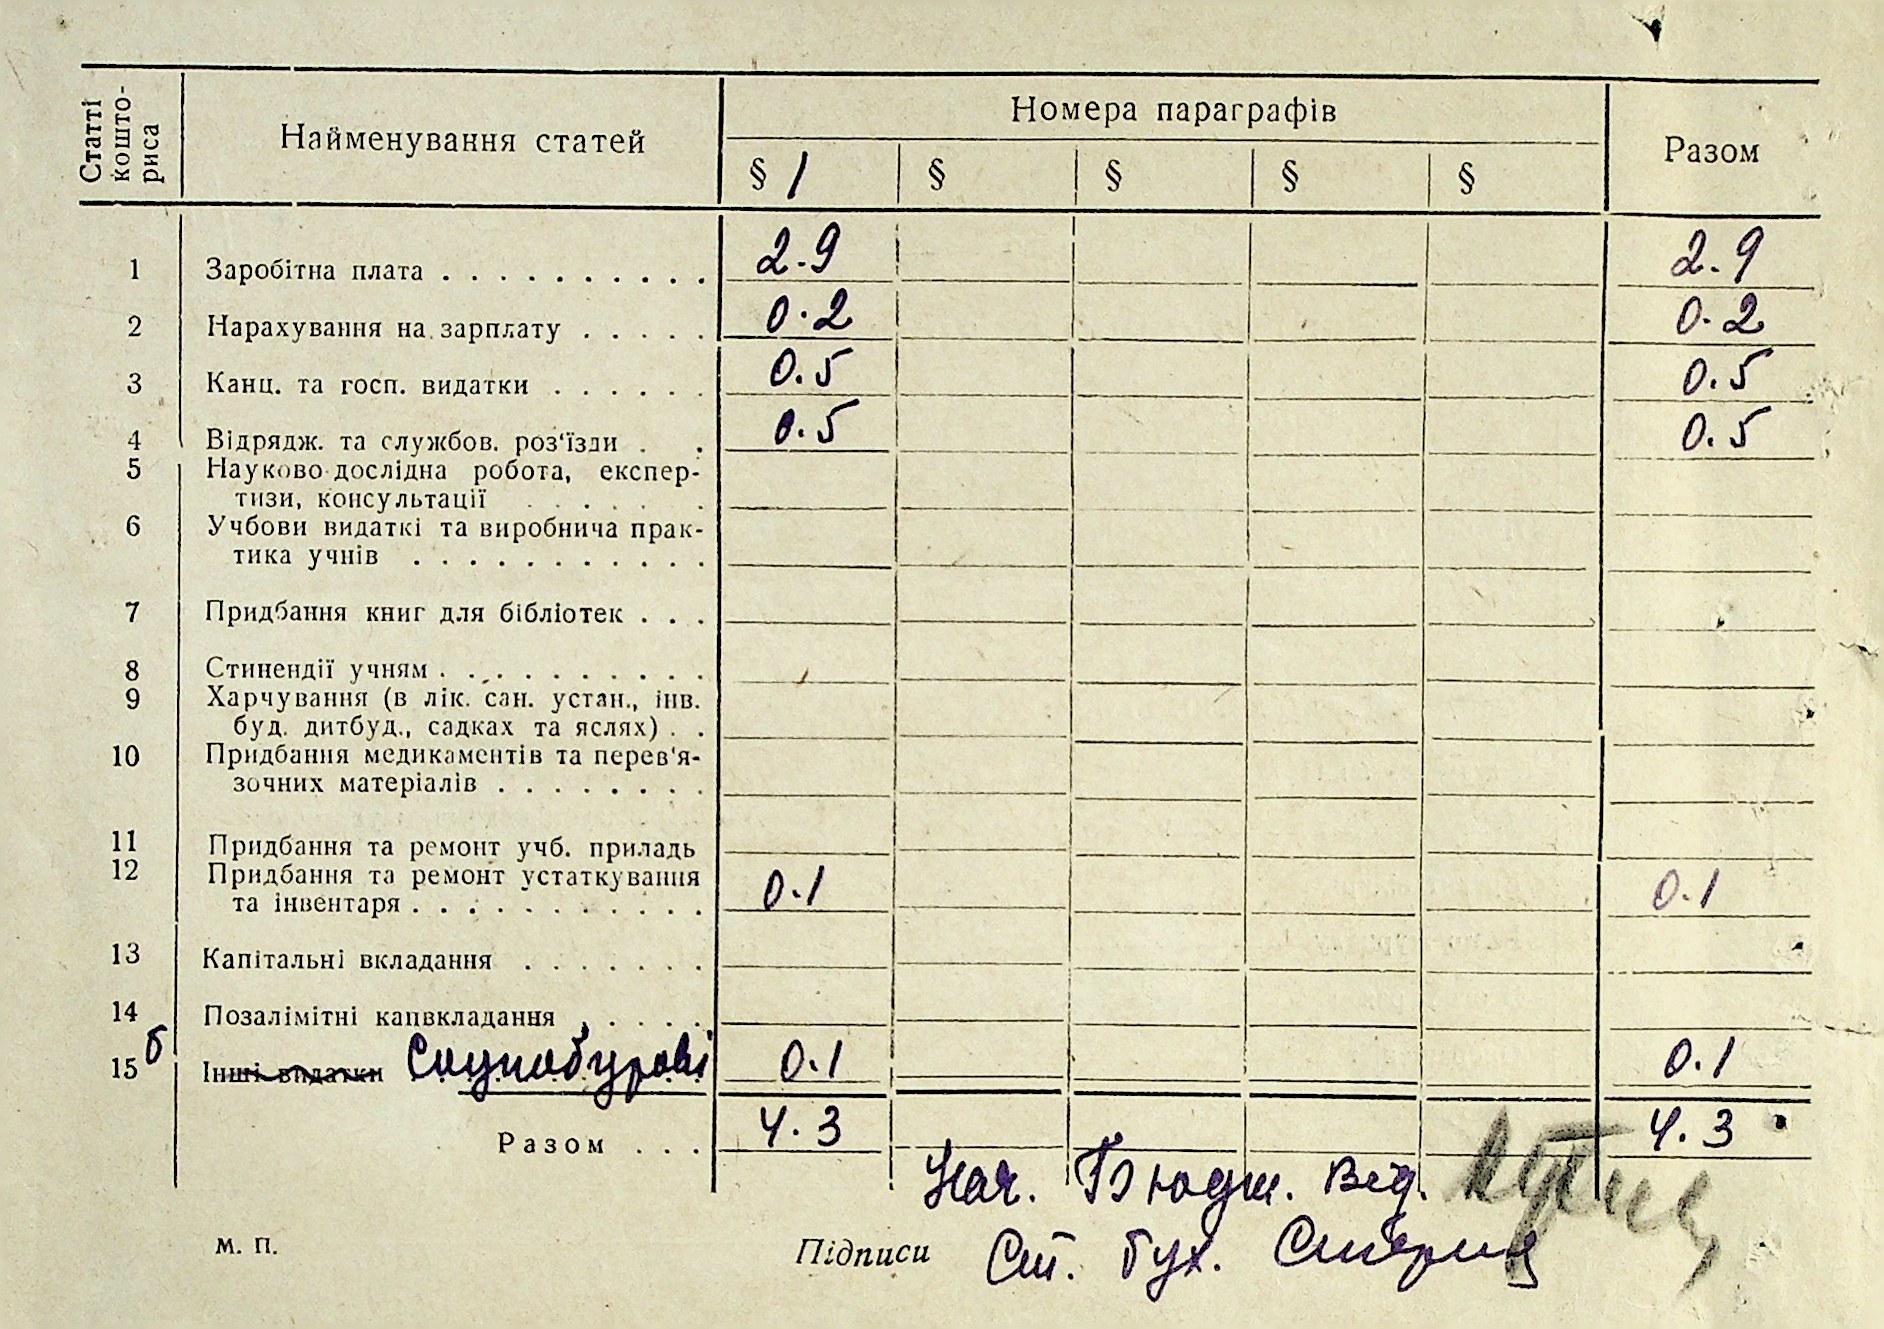 Статті кошто-риса
Найменування статей
Номера параграфів
Разом
§ 1 § § § §
1 Заробітна плата . . . . . . . . . . 2.9 2.9
2 Нарахування на зарплату . . . . . 0.2 0.2
3 Канц. та госп. видатки . . . . . . 0.5 0.5
4 Відрядж. та службов. роз'їзди . . 0.5 0.5
5 Науково-дослідна робота, експер-
тизи, консультації . . . . . .
6 Учбови видаткі та виробнича прак-
тика учнів . . . . . . . . . . .
7 Придбання книг для бібліотек . . .
8 Стипендії учням . . . . . . . . . .
9 Харчування (в лік. сан. устан., інв.
буд. дитбуд., садках та яслях) . .
10 Придбання медикаментів та перев'я-
зочних матеріалів . . . . . . . .
11 Придбання та ремонт учб. приладь
12 Придбання та ремонт устаткування
та інвентаря . . . . . . . . . . . 0.1 0.1
13 Капітальні вкладання . . . . . . .
14 Позалімітні капвкладання . . . . .
15 б Інші видатки 0.1 0.1
Разом . . . 4.3 4.3
Нач. Бюдж. Від.
М. П. Підписи Ст. бух.